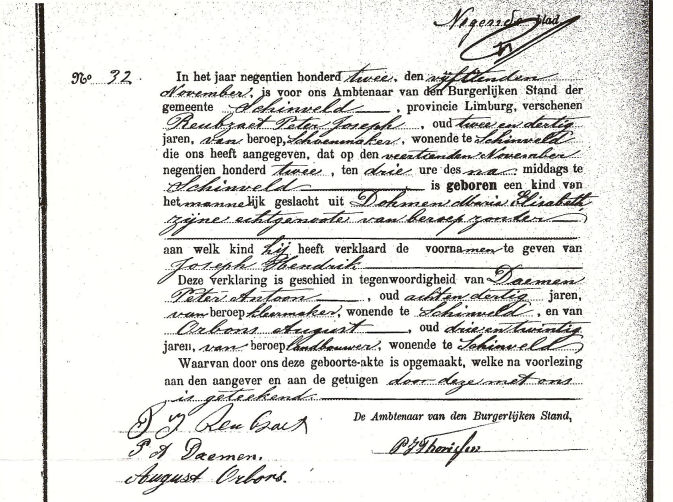 Negende blad
No 32. In het jaar negentien honderd twee, den vijftienden
November, is voor ons Ambtenaar van den Burgerlijken Stand der
gemeente Schinveld, provincie Limburg, verschenen
Reubzaet Peter Joseph, oud twee en dertig
jaren, van beroep, Schoenmaker, wonende te Schinveld
die ons heeft aangegeven, dat op den veertienden November
negentien honderd twee, ten drie ure des na middags te
Schinveld is geboren een kind van
het mannelijk geslacht uit Dohmen Maria Elisabeth
zijne echtgenoote van beroep zonder
aan welk kind hij heeft verklaard de voornamen te geven van
Joseph Hendrik
Deze verklaring is geschied in tegenwoordigheid van Daemen
Peter Antoon, oud acht en dertig jaren,
van beroep kleermaker, wonende te Schinveld, en van
Orbons August, oud drie en twintig
jaren, van beroep landbouwer, wonende te Schinveld
Waarvan door ons deze geboorte-akte is opgemaakt, welke na voorlezing
aan den aangever en aan de getuigen door deze met ons
is geteekend.
De Ambtenaar van den Burgerlijken Stand,
P J Reubzaet
P A Daemen.
August Orbons.